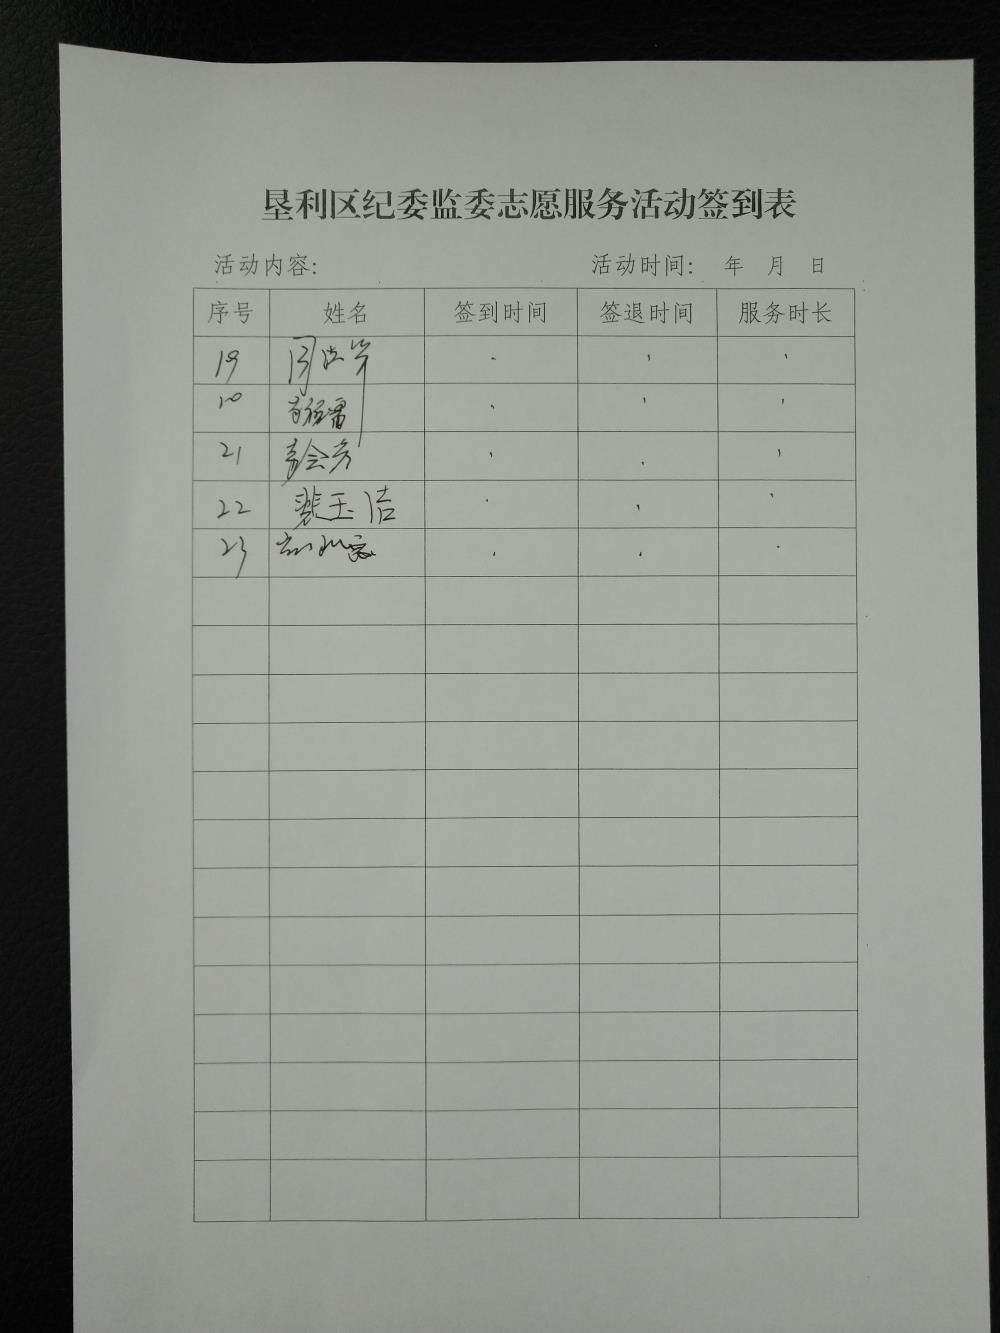 垦利区纪委监委志愿服务活动签到表
活动内容: 活动时间: 年 月 日
序号 姓名 签到时间 签退时间 服务时长
19
10
21
22 裴玉洁
23